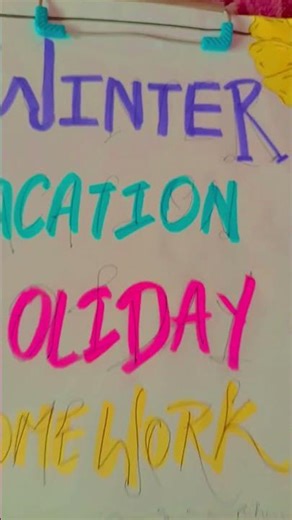 WINTER
VACATION
HOLIDAY
HOMEWORK